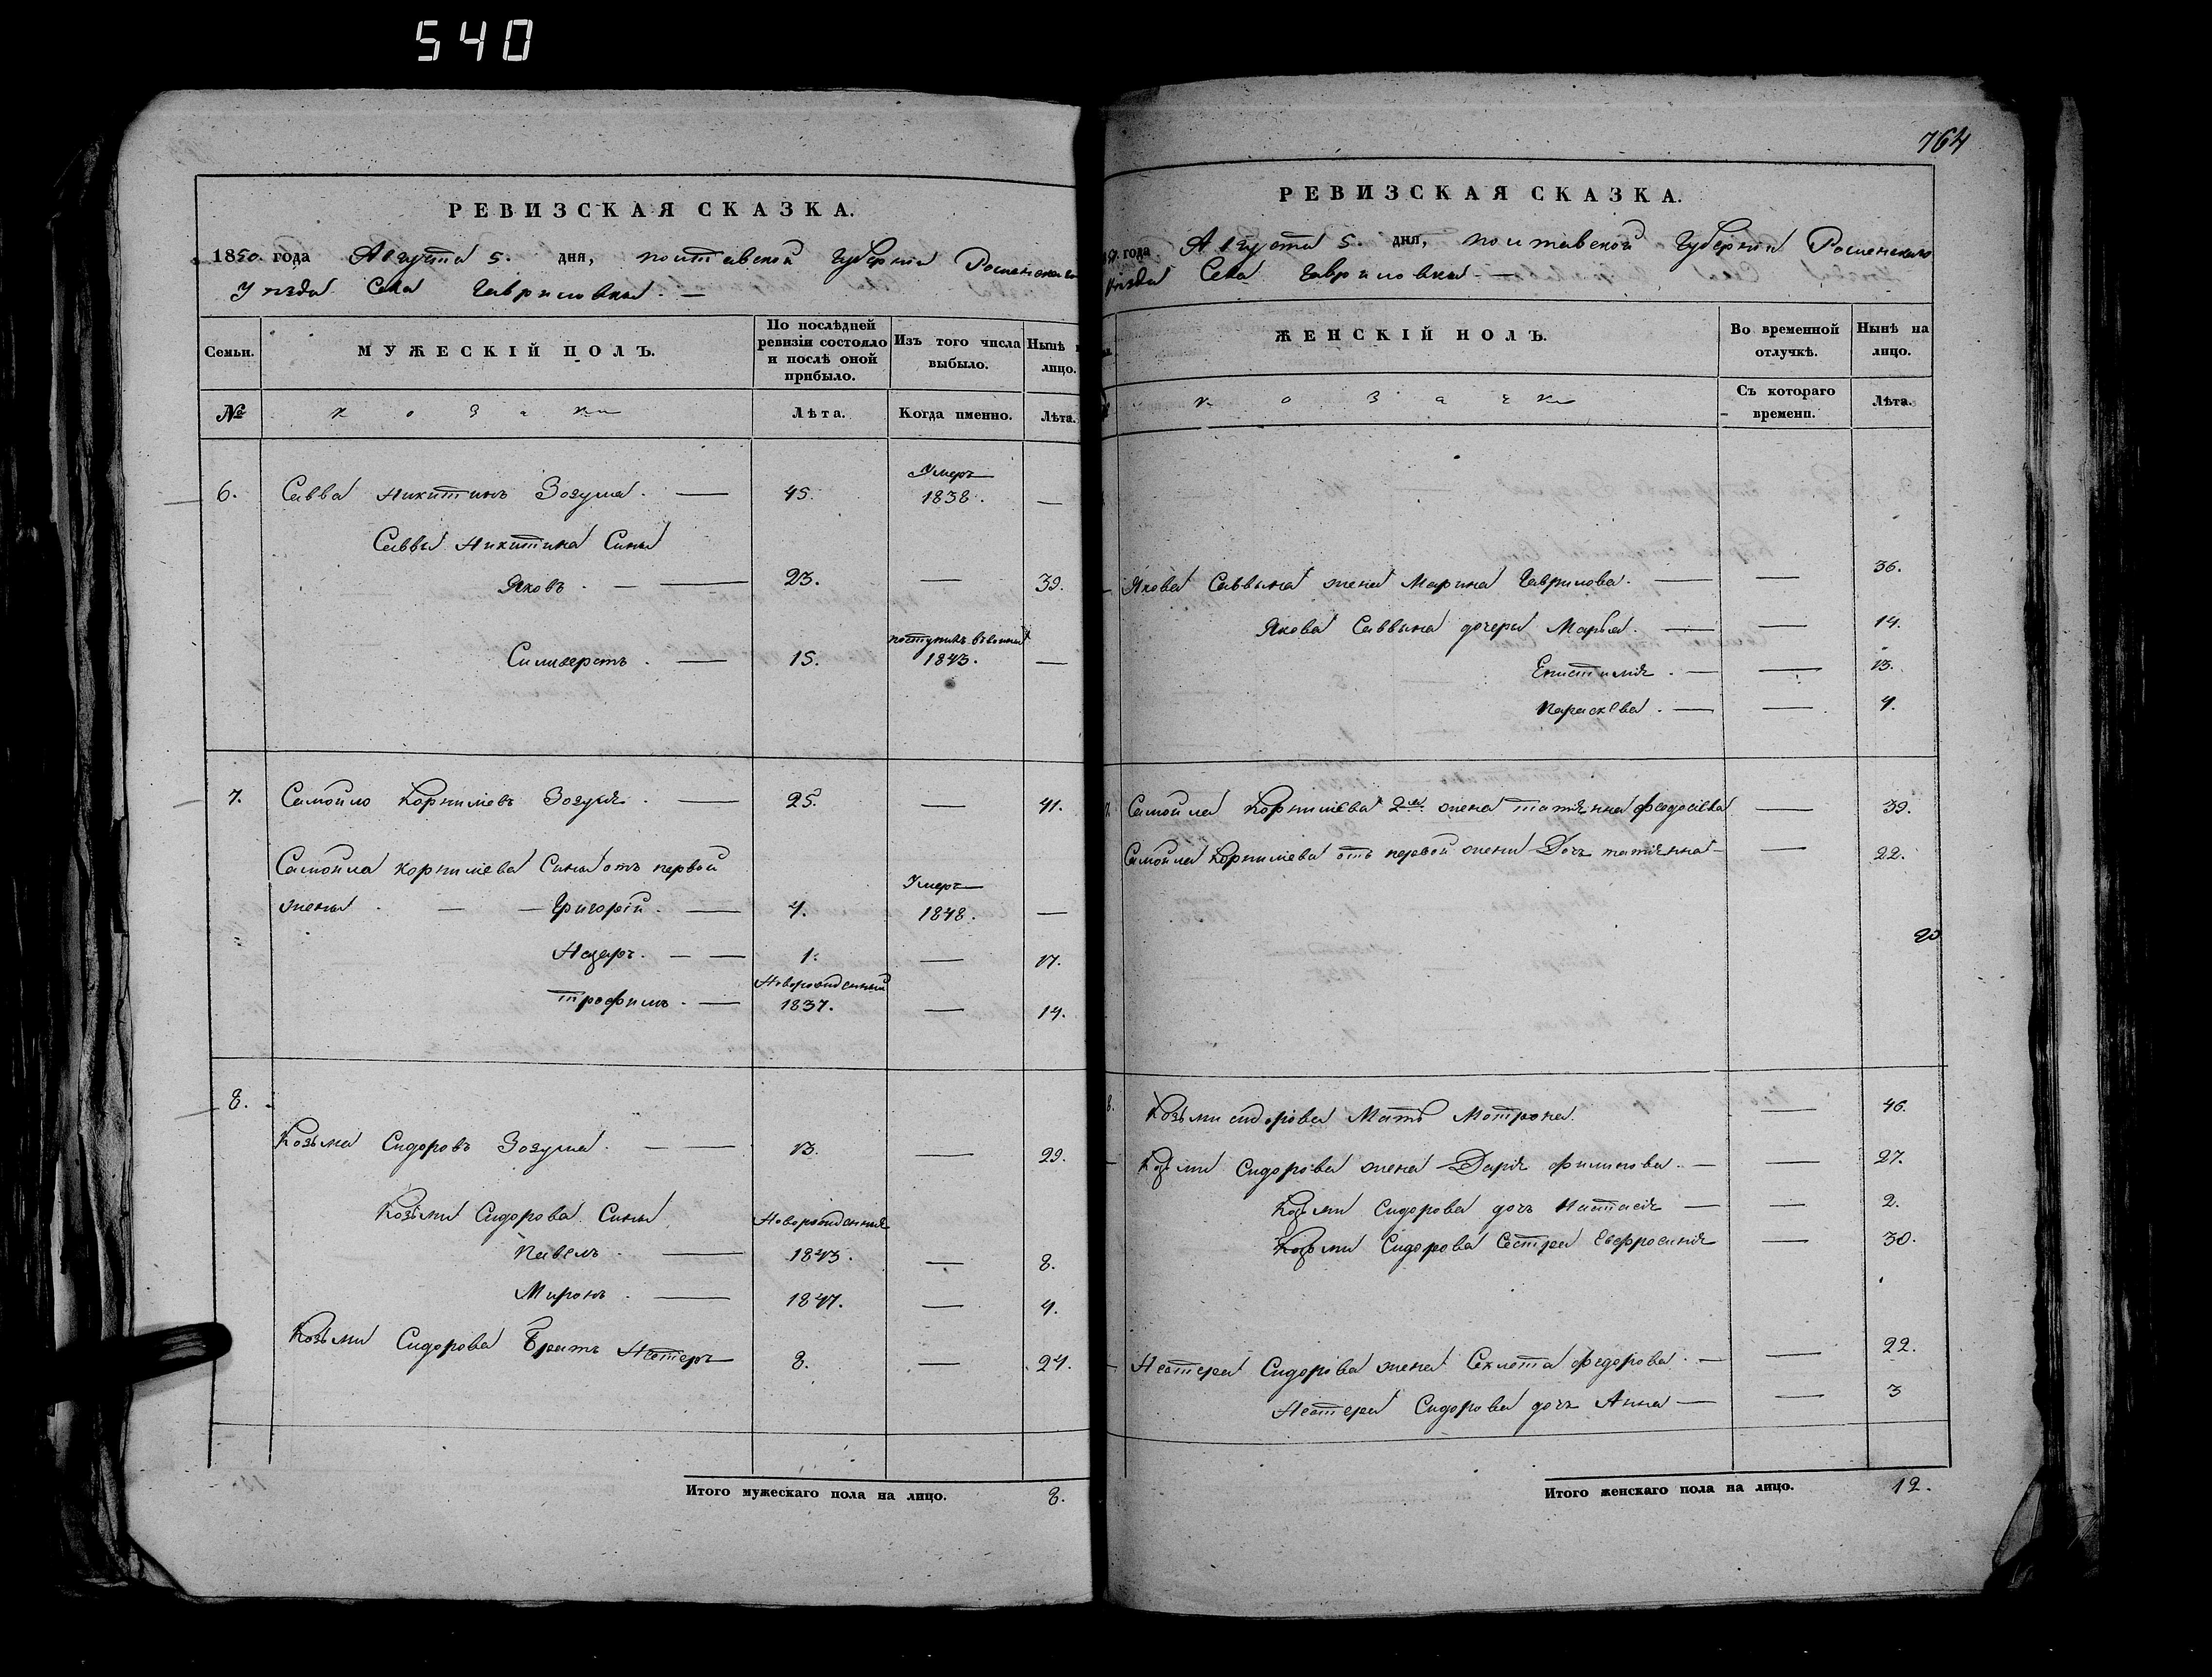 540
764
РЕВИЗСКАЯ СКАЗКА.
1850. года Августа 5. дня, Полтавской Губернии Роменскаго
Уезда Села Гавриловки. —
Семьи. МУЖЕСКІЙ ПОЛЪ. По послѣдней ревизіи состояло и послѣ оной прибыло. Изъ того числа выбыло. Нынѣ лицо.
№ козаки Лѣта. Когда именно. Лѣта.
6. Савва Никитинъ Зозуля. — 45. Умеръ 1838. —
Саввы Никитина Сины
Яковъ. — 23. — 39.
Силиверстъ. — 15. 1843. —
7. Самойло Корнилієвъ Зозуля. — 25. — 41.
Самойла Корнилієва Сины отъ первой
жены. — Григорій. — 4. Умеръ 1848. —
Назаръ. — 1. — 17.
Трофимъ. — Новорожденный 1837. — 14.
8.
Козьма Сидоровъ Зозуля. — 13. — 29.
Козьми Сидорова Сины Новорожденния
Павелъ. — 1843. — 8.
Миронъ. — 1847. — 4.
Козьми Сидорова Братъ Нестеръ 8. — 24.
Итого мужескаго пола на лицо. 8.
РЕВИЗСКАЯ СКАЗКА.
года Августа 5. дня, Полтавской Губернии Роменскаго
Уезда Села Гавриловки. —
ЖЕНСКІЙ ПОЛЪ. Во временной отлучкѣ. Нынѣ на лицо.
козачки Съ котораго времени. Лѣта.
Якова Саввына жена Марина Гаврилова. — — 36.
Якова Саввына дочери Марья. — — 14.
Епистимія. — — 13.
Параскева. — — 4.
Самойла Корнилієва 2я жена Татіянна Федосієва — 39.
Самойла Корнилієва отъ первой жени Дочъ Татіянна — — 22.
Козьми Сидорова Мать Мотрона. — 46.
Козьми Сидорова жена Дарія Филипова. — — 27.
Козьми Сидорова дочъ Настасія — — 2.
Козьми Сидорова Сестра Евфросинія — 30.
Нестера Сидорова жена Секлета Федорова. — — 22.
Нестера Сидорова дочъ Анна — — 3
Итого женскаго пола на лицо. 12.